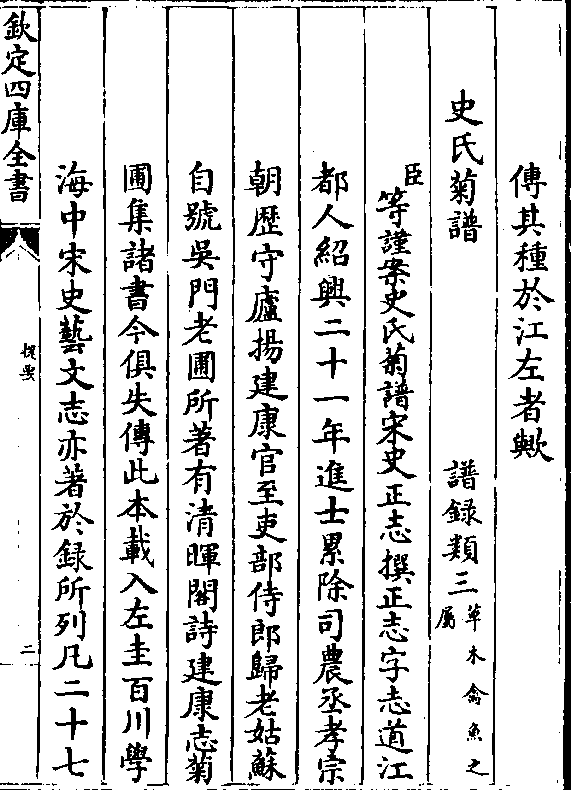 傳其種於江左者歟
史氏菊譜
譜録類三草木禽魚之屬
臣等謹案史氏菊譜宋史正志撰正志字志道江
都人紹興二十一年進士累除司農丞孝宗
朝歴守廬揚建康官至吏部侍郎歸老姑蘇
自號吳門老圃所著有清暉閣詩建康志菊
圃集諸書今俱失傳此本載入左圭百川學
海中宋史藝文志亦著於録所列凡二十七
欽定四庫全書
提要
二